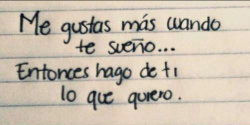 Me gustas más cuando
te sueño...
Entonces hago de ti
lo que quiero.